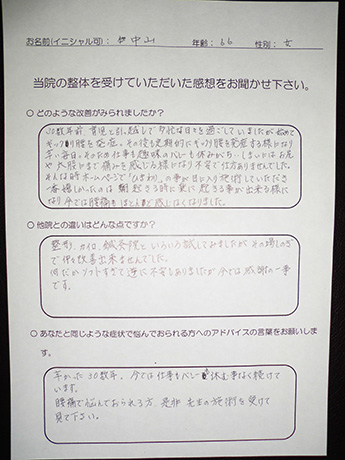 お名前(イニシャル可): 中山 年齢: 66 性別: 女
当院の整体を受けていただいた感想をお聞かせ下さい。
○ どのような改善がみられましたか?
30数年前、育児と引越しで多忙な日々を過ごしていましたが始めて
ギックリ腰を発症。その後も定期的にギックリ腰を発症する様になり
辛い毎日。そのため仕事も趣味のバレーも休みがち…しまいにはお尻
や太股にまで痛みを感じる様になり不安で仕方ありませんでした。
そんな時ホームページで「ひまわり」の事が目に入り施術していただき
一番嬉しかったのは朝起きる時に楽に起きる事が出来る様に
なり今では腰痛もほとんど感じなくなりました。
○ 他院との違いはどんな点ですか?
整骨、カイロ、鍼灸院といろいろ試してみましたがその場しのぎ
で中々改善出来ませんでした。
何だかソフトすぎて逆に不安もありましたが今では感謝の一言
です。
○ あなたと同じような症状で悩んでおられる方へのアドバイスの言葉をお願いしま
す。
辛かった30数年、今では仕事もバレーも休む事なく続けて
います。
腰痛で悩んでおられる方、是非先生の施術を受けて
見て下さい。